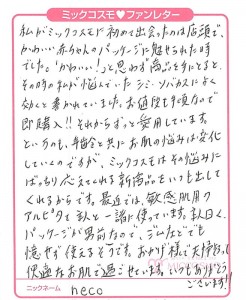 ミックコスモ♥ファンレター
私がミックコスモに初めて出会ったのは店頭で、
かわいい赤ちゃんのパッケージに魅せられた時
でした。「かわいい!」と思わず商品を手にとると、
その時の私が悩んでいたシミ・ソバカスによく
効くと書かれていました。お値段も手頃なので
即購入!!それからずっと愛用しています。
というのも、年齢と共にお肌の悩みは変化
していくのですが、ミックコスモはその悩みに
ばっちり応えてくれる新商品をいつも出して
くれるからです。最近では、敏感肌用の
アルピタで主人と一緒に使っています。主人曰く、
パッケージが男前なので、ジムなどでも
憶せず使えるそうです。おかげ様で夫婦そろって
快適なお肌で過ごせています。いつもありがとう
ございます!!
ニックネーム neco